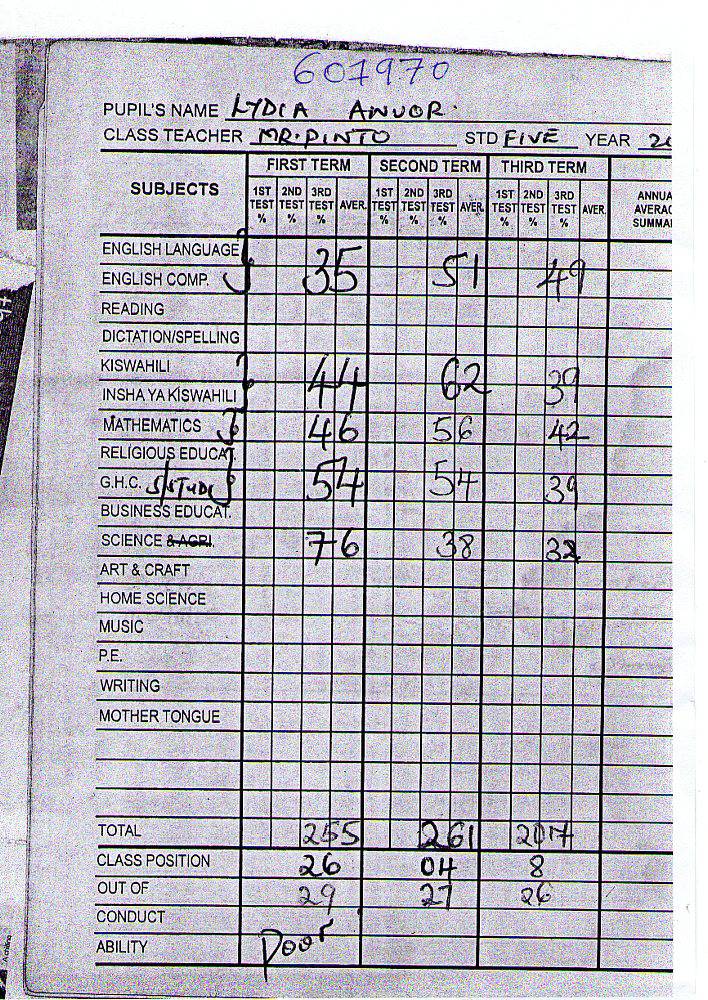 607970
PUPIL'S NAME LYDIA ANUOR.
CLASS TEACHER MR. PINTO STD FIVE YEAR 20
SUBJECTS FIRST TERM SECOND TERM THIRD TERM
1ST TEST % 2ND TEST % 3RD TEST % AVER. 1ST TEST % 2ND TEST % 3RD TEST % AVER. 1ST TEST % 2ND TEST % 3RD TEST % AVER. ANNUA AVERAG SUMMA
ENGLISH LANGUAGE
ENGLISH COMP. 35 51 49
READING
DICTATION/SPELLING
KISWAHILI
INSHA YA KISWAHILI 44 62 39
MATHEMATICS 46 56 42
RELIGIOUS EDUCAT.
G.H.C. S/STUDI 54 54 39
BUSINESS EDUCAT.
SCIENCE & AGRI. 76 38 32
ART & CRAFT
HOME SCIENCE
MUSIC
P.E.
WRITING
MOTHER TONGUE
TOTAL 255 261 201
CLASS POSITION 26 04 8
OUT OF 29 27 26
CONDUCT
ABILITY Poor